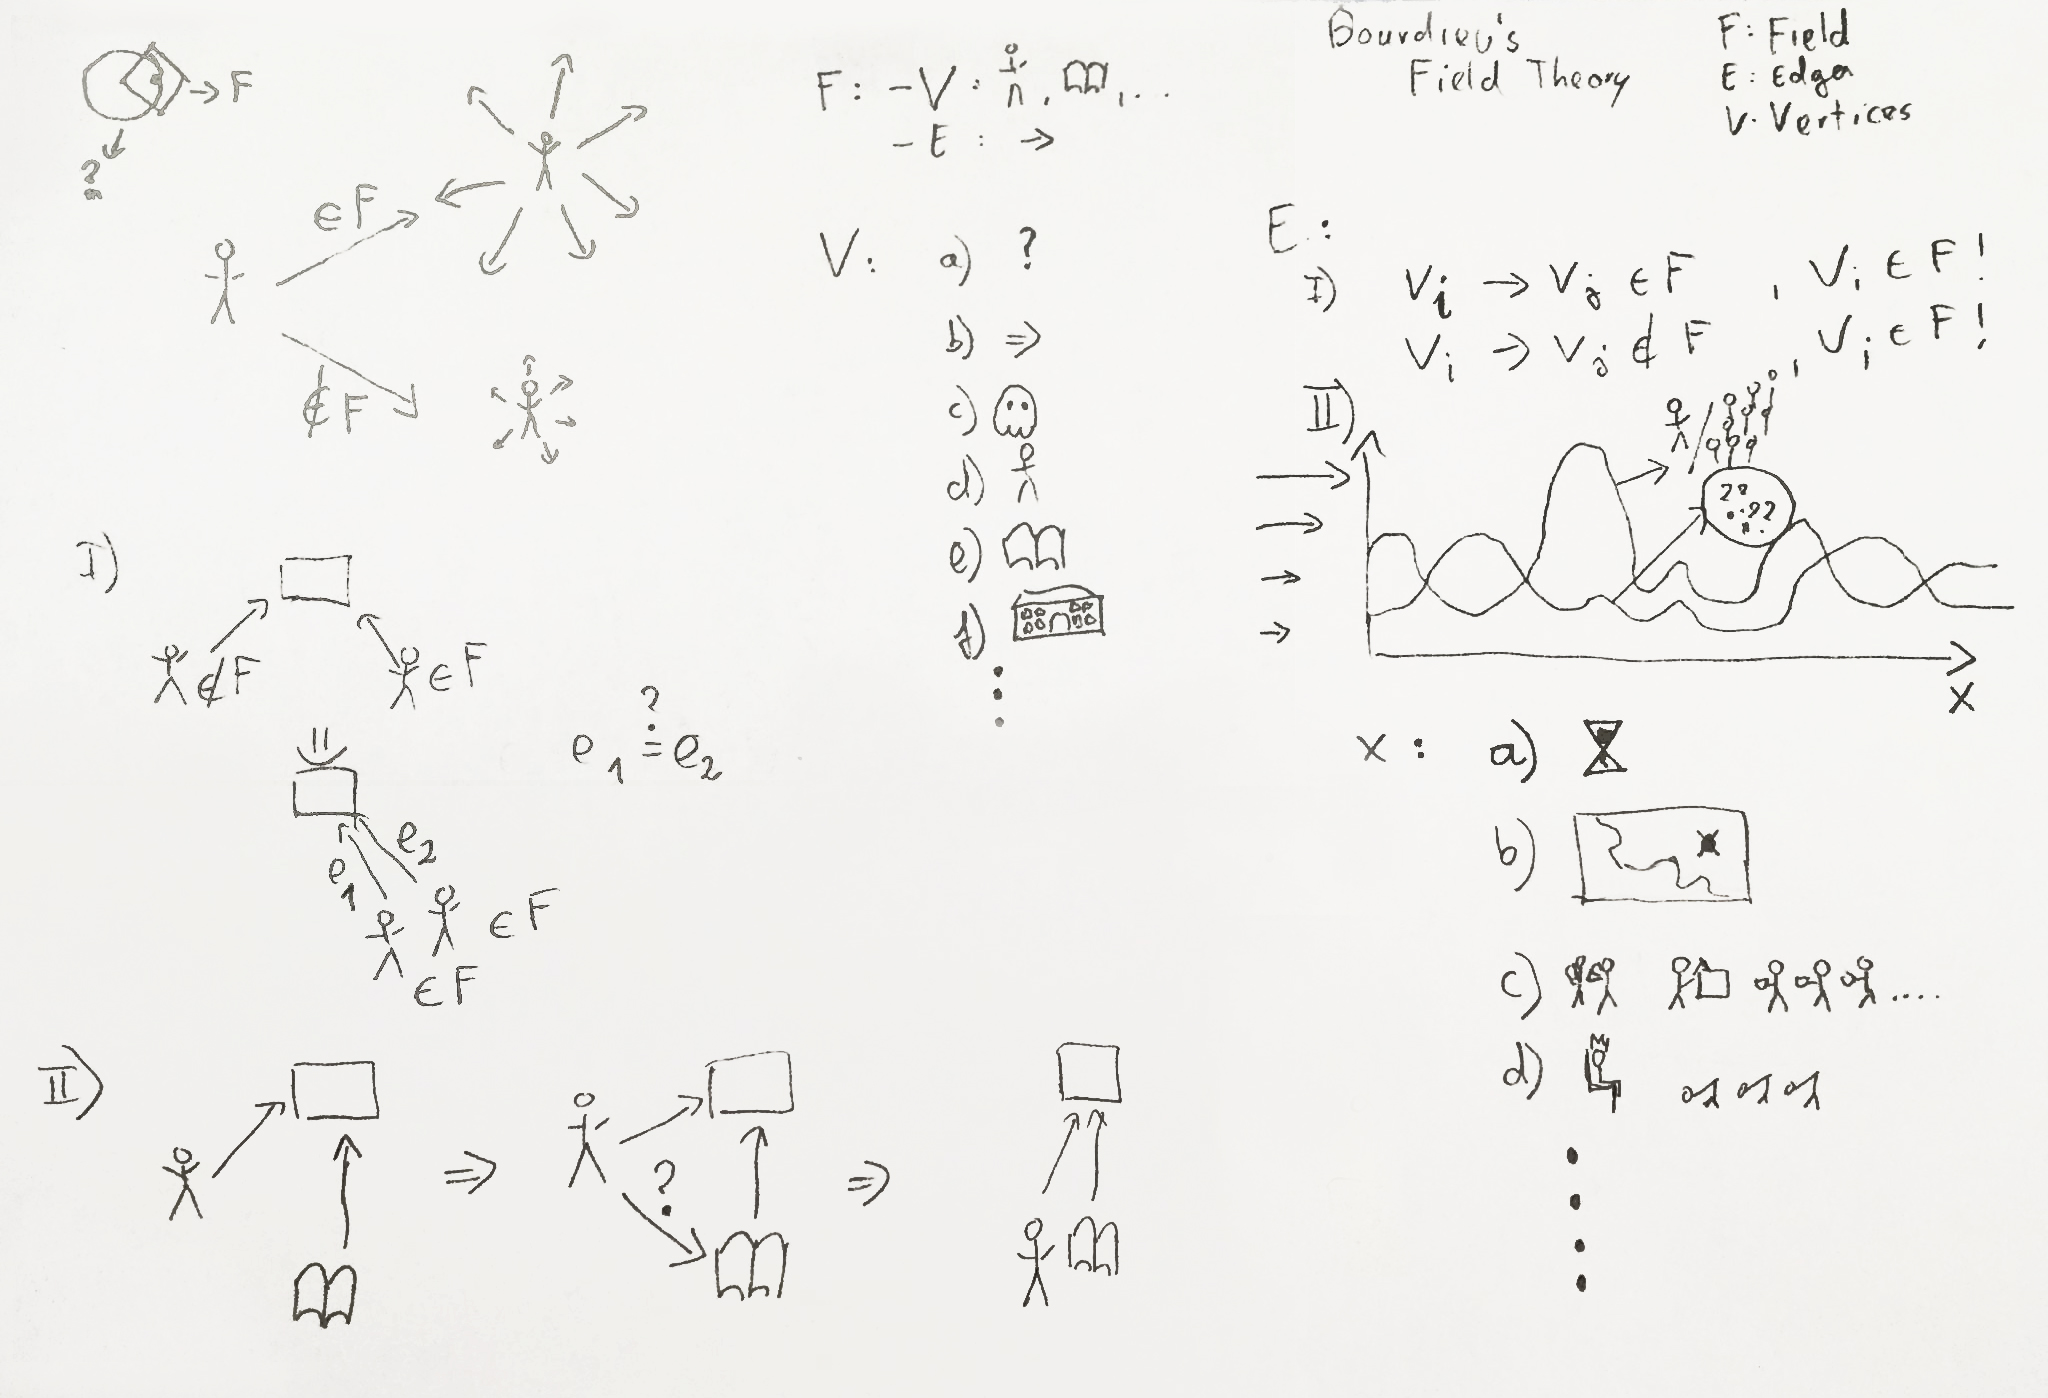 Bourdieu's
Field Theory
F: Field
E: Edge
V: Vertices
→ F
?
∈ F
∉ F
F: - V: , , ...
- E : →
V: a) ?
b) ⇒
c)
d)
e)
f)
E:
I) Vi → Vj ∈ F , Vi ∈ F!
Vi → Vj ∉ F , Vi ∈ F!
II)
??
??
x
x: a)
b)
c) ....
d)
I)
∉ F
∈ F
=
e1 ≟ e2
e2
e1
∈ F
∈ F
II)
⇒
?
⇒